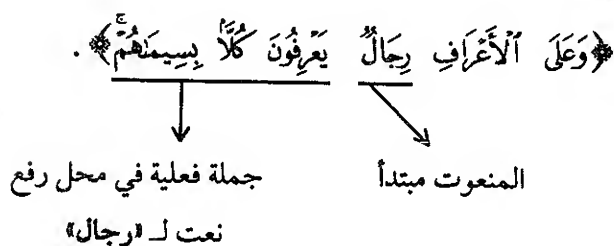 ﴿وَعَلَى ٱلْأَعْرَافِ رِجَالٌ يَعْرِفُونَ كُلًّۢا بِسِيمَىٰهُمْ ۚ﴾ .
المنعوت مبتدأ
جملة فعلية في محل رفع
نعت لـ «رجال»